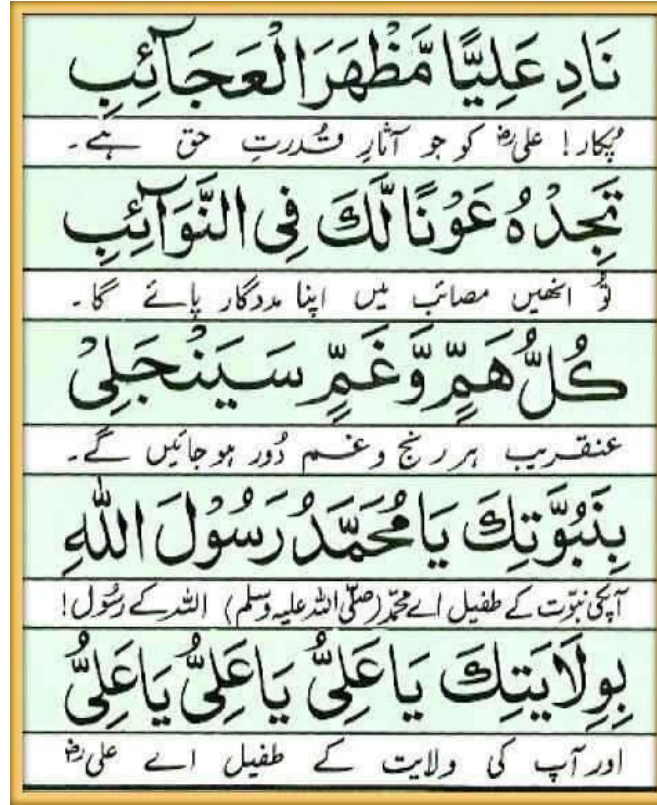 نَادِ عَلِيًّا مَّظْهَرَ الْعَجَآئِبِ
پُکار! علیؓ کو جو آثارِ قُدرتِ حق ہے۔
تَجِدْهُ عَوْنًا لَّكَ فِى النَّوَآئِبِ
تُو انھیں مصائب میں اپنا مددگار پائے گا۔
كُلُّ هَمٍّ وَّغَمٍّ سَيَنْجَلِىْ
عنقریب ہر رنج و غم دُور ہو جائیں گے۔
بِنَبُوَّتِكَ يَا مُحَمَّدُ رَسُوْلَ اللهِ
آپکی نبوّت کے طفیل اے محمّد (صلّی اللہ علیہ وسلم) اللہ کے رسُول!
بِوِلَايَتِكَ يَا عَلِىُّ يَا عَلِىُّ يَا عَلِىُّ
اور آپ کی ولایت کے طفیل اے علیؓ